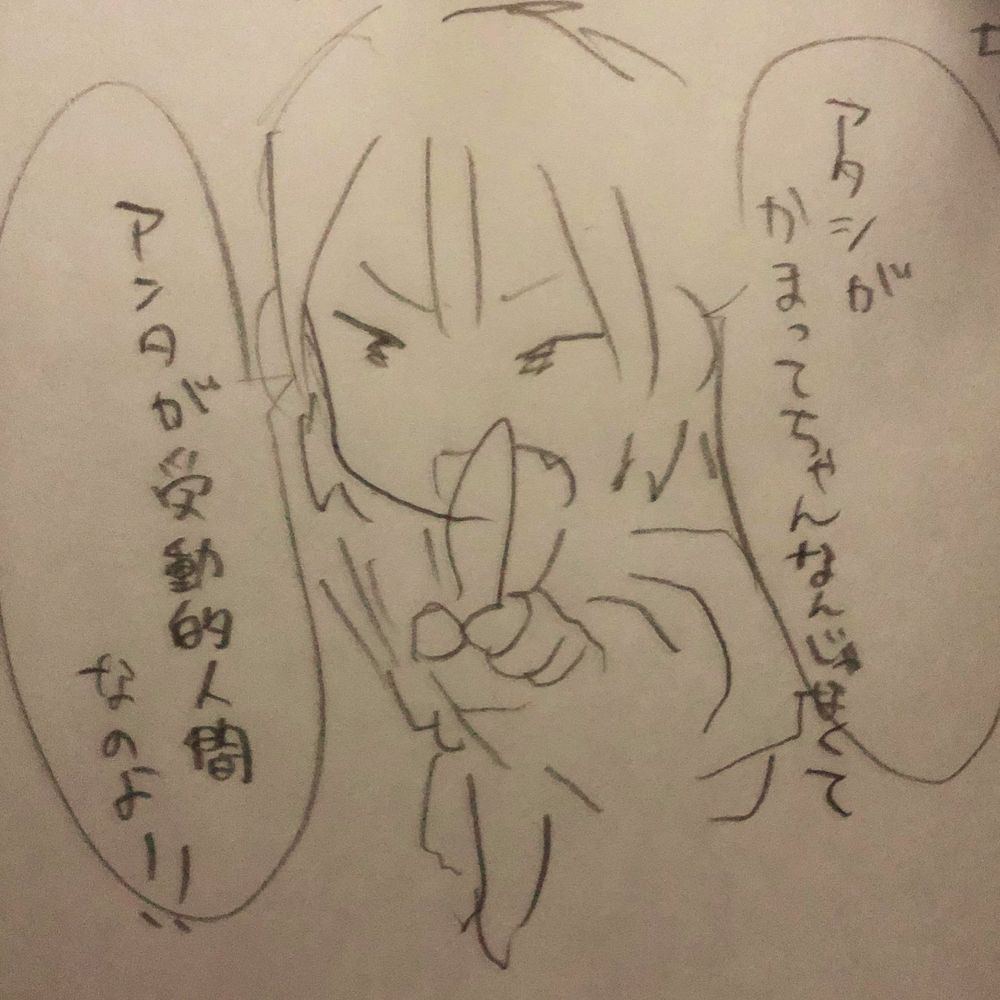 アタシが
かまってちゃんなんじゃなくて
アンタが受動的人間
なのよ!!